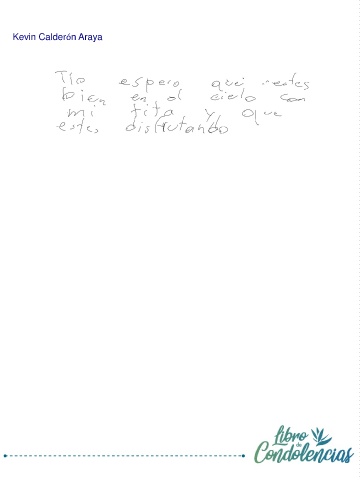 Kevin Calderón Araya
Tio espero que estes
bien en el cielo con
mi tita y que
estes disfrutando
Libro
de
Condolencias